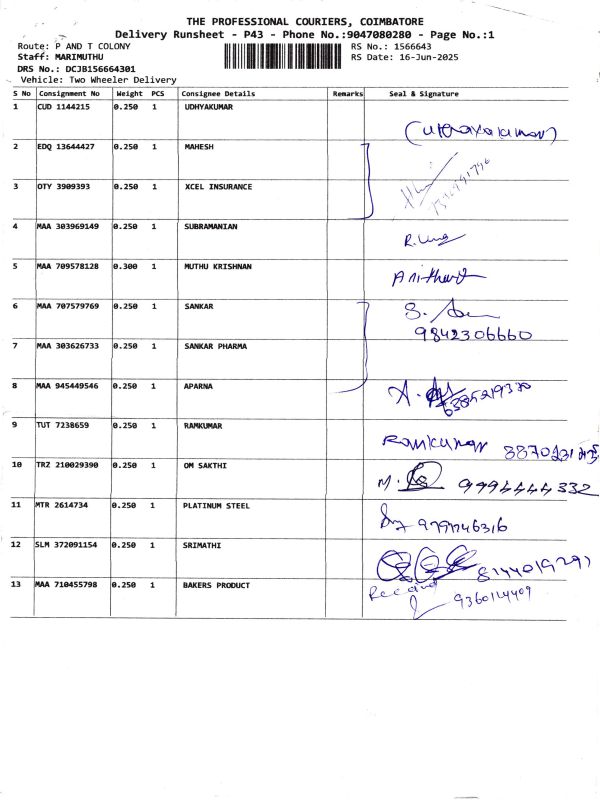 THE PROFESSIONAL COURIERS, COIMBATORE
Delivery Runsheet - P43 - Phone No.:9047080280 - Page No.:1
Route: P AND T COLONY RS No.: 1566643
Staff: MARIMUTHU RS Date: 16-Jun-2025
DRS No.: DCJB156664301
Vehicle: Two Wheeler Delivery
S No Consignment No Weight PCS Consignee Details Remarks Seal & Signature
1 CUD 1144215 0.250 1 UDHYAKUMAR
2 EDQ 13644427 0.250 1 MAHESH
3 OTY 3909393 0.250 1 XCEL INSURANCE
4 MAA 303969149 0.250 1 SUBRAMANIAN
5 MAA 709578128 0.300 1 MUTHU KRISHNAN
6 MAA 707579769 0.250 1 SANKAR S.
9842306660
7 MAA 303626733 0.250 1 SANKAR PHARMA
8 MAA 945449546 0.250 1 APARNA A.
9 TUT 7238659 0.250 1 RAMKUMAR Ramkumar
10 TRZ 210029390 0.250 1 OM SAKTHI M. 9994444332
11 MTR 2614734 0.250 1 PLATINUM STEEL 9791746316
12 SLM 372091154 0.250 1 SRIMATHI
13 MAA 710455798 0.250 1 BAKERS PRODUCT 9360124409